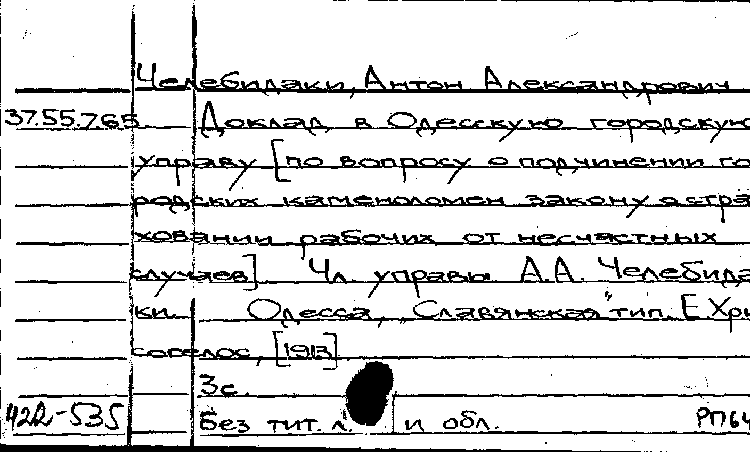 Челебидаки, Антон Александрович
37.55.7.65 Доклад в Одесскую городскую
управу [по вопросу о подчинении го
родских каменоломен закону о стра
ховании рабочих от несчастных
случаев] Чл. управы А.А. Челебида
ки. Одесса, "Славянская" тип. Е Хри
согелос, [1913]
3с.
42Д-535 Без тит. л. и обл. РП64